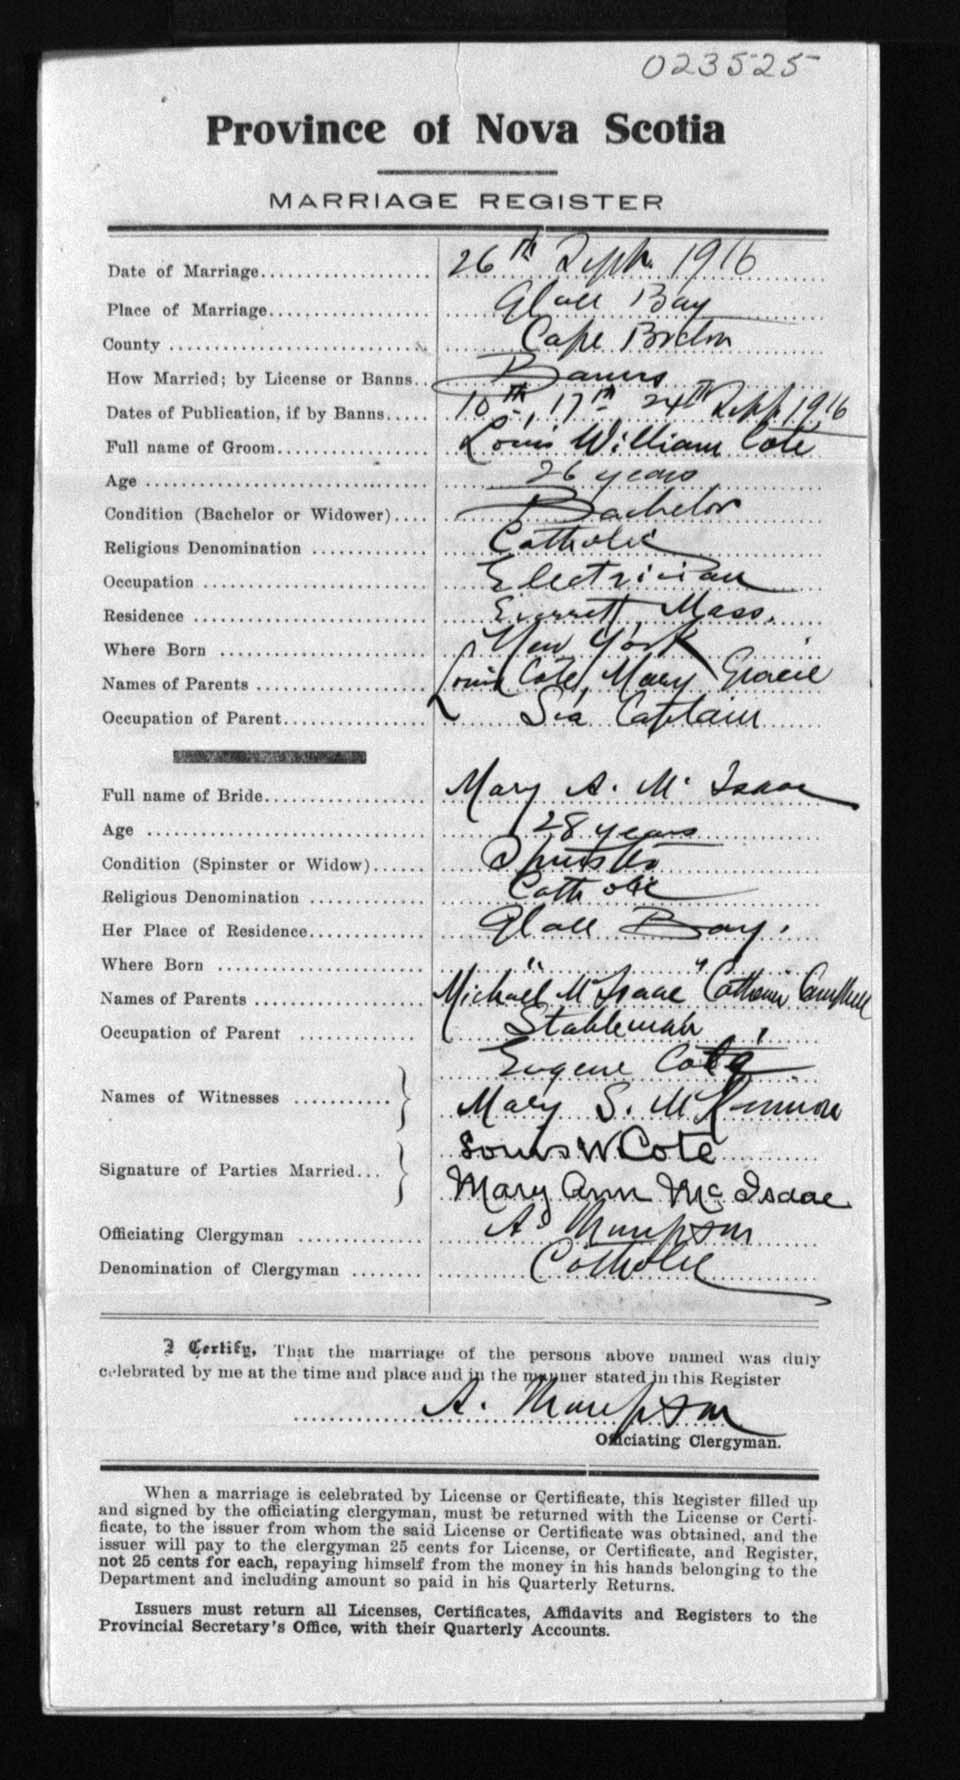 023525
Province of Nova Scotia
MARRIAGE REGISTER
Date of Marriage.................... 26th Sept. 1916
Place of Marriage................... Glace Bay
County .............................. Cape Breton
How Married; by License or Banns.. Banns
Dates of Publication, if by Banns..... 10th, 17th 24th Sept 1916
Full name of Groom.................. Louis William Coté
Age ................................. 26 years
Condition (Bachelor or Widower).... Bachelor
Religious Denomination ............. Catholic
Occupation .......................... Electrician
Residence ........................... Everett Mass.
Where Born ........................ New York
Names of Parents .................... Louis Coté, Mary Gracie
Occupation of Parent................. Sea Captain
Full name of Bride................... Mary A. Mc Isaac
Age ................................. 28 years
Condition (Spinster or Widow)...... Spinster
Religious Denomination ............. Catholic
Her Place of Residence............. Glace Bay.
Where Born ........................ " "
Names of Parents .................... Michael McIsaac Catherine Campbell
Occupation of Parent ............... Stableman
Eugene Coté
Names of Witnesses ...........
Mary S. McKinnon
Louis W Cote
Signature of Parties Married...
Mary Ann Mc Isaac
Officiating Clergyman ............... A. Thompson
Denomination of Clergyman ........ Catholic
I Certify, That the marriage of the persons above named was duly
celebrated by me at the time and place and in the manner stated in this Register
A. Thompson
Officiating Clergyman.
When a marriage is celebrated by License or Certificate, this Register filled up
and signed by the officiating clergyman, must be returned with the License or Certi-
ficate, to the issuer from whom the said License or Certificate was obtained, and the
issuer will pay to the clergyman 25 cents for License, or Certificate, and Register,
not 25 cents for each, repaying himself from the money in his hands belonging to the
Department and including amount so paid in his Quarterly Returns.
Issuers must return all Licenses, Certificates, Affidavits and Registers to the
Provincial Secretary's Office, with their Quarterly Accounts.